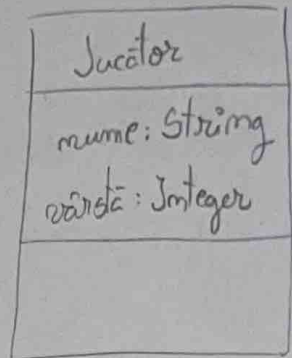 Jucător
nume: String
vârstă: Integer